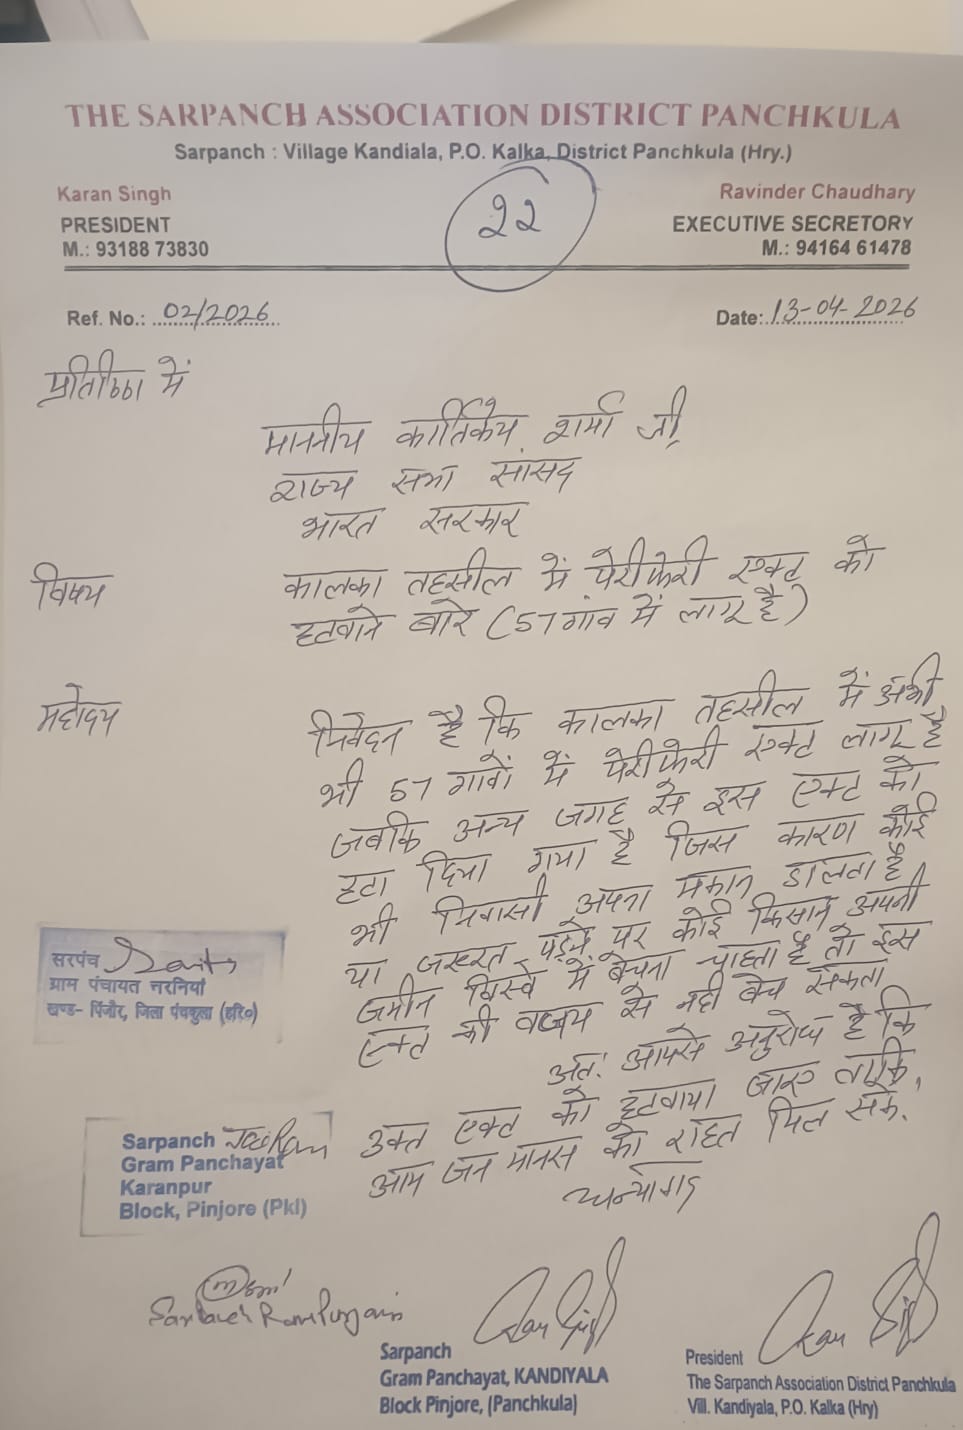 THE SARPANCH ASSOCIATION DISTRICT PANCHKULA
Sarpanch : Village Kandiala, P.O. Kalka, District Panchkula (Hry.)
Karan Singh
PRESIDENT
M.: 93188 73830
22
Ravinder Chaudhary
EXECUTIVE SECRETORY
M.: 94164 61478
Ref. No.: 02/2026
Date: 13-04-2026
में
माननीय कार्तिकेय शर्मा जी,
राज्य सभा सांसद
भारत सरकार
विषय कालका तहसील में पेरीफेरी एक्ट को
हटवाने बारे (57 गांव में लागू है)
महोदय
निवेदन है कि कालका तहसील में अभी
भी 57 गावों में पेरीफेरी एक्ट लागू है
जबकि अन्य जगह से इस एक्ट को
हटा दिया गया है जिस कारण कोई
भी निवासी अपना मकान डालता है
या जरूरत पड़ने पर कोई किसान अपनी
जमीन विस्वे में बेचना चाहता है तो इस
एक्ट की वजय से नही बेच सकता
अतः आपसे अनुरोध है कि
उक्त एक्ट को हटवाया जाए ताकि,
आम जन मानस को राहत मिल सके.
सरपंच
ग्राम पंचायत नरनियां
खण्ड- पिंजौर, जिला पंचकुला (हरि०)
Sarpanch Jai Ram
Gram Panchayat
Karanpur
Block, Pinjore (Pkl)
Sarpanch
Sarpanch
Gram Panchayat, KANDIYALA
Block Pinjore, (Panchkula)
President
The Sarpanch Association District Panchkula
Vill. Kandiyala, P.O. Kalka (Hry)